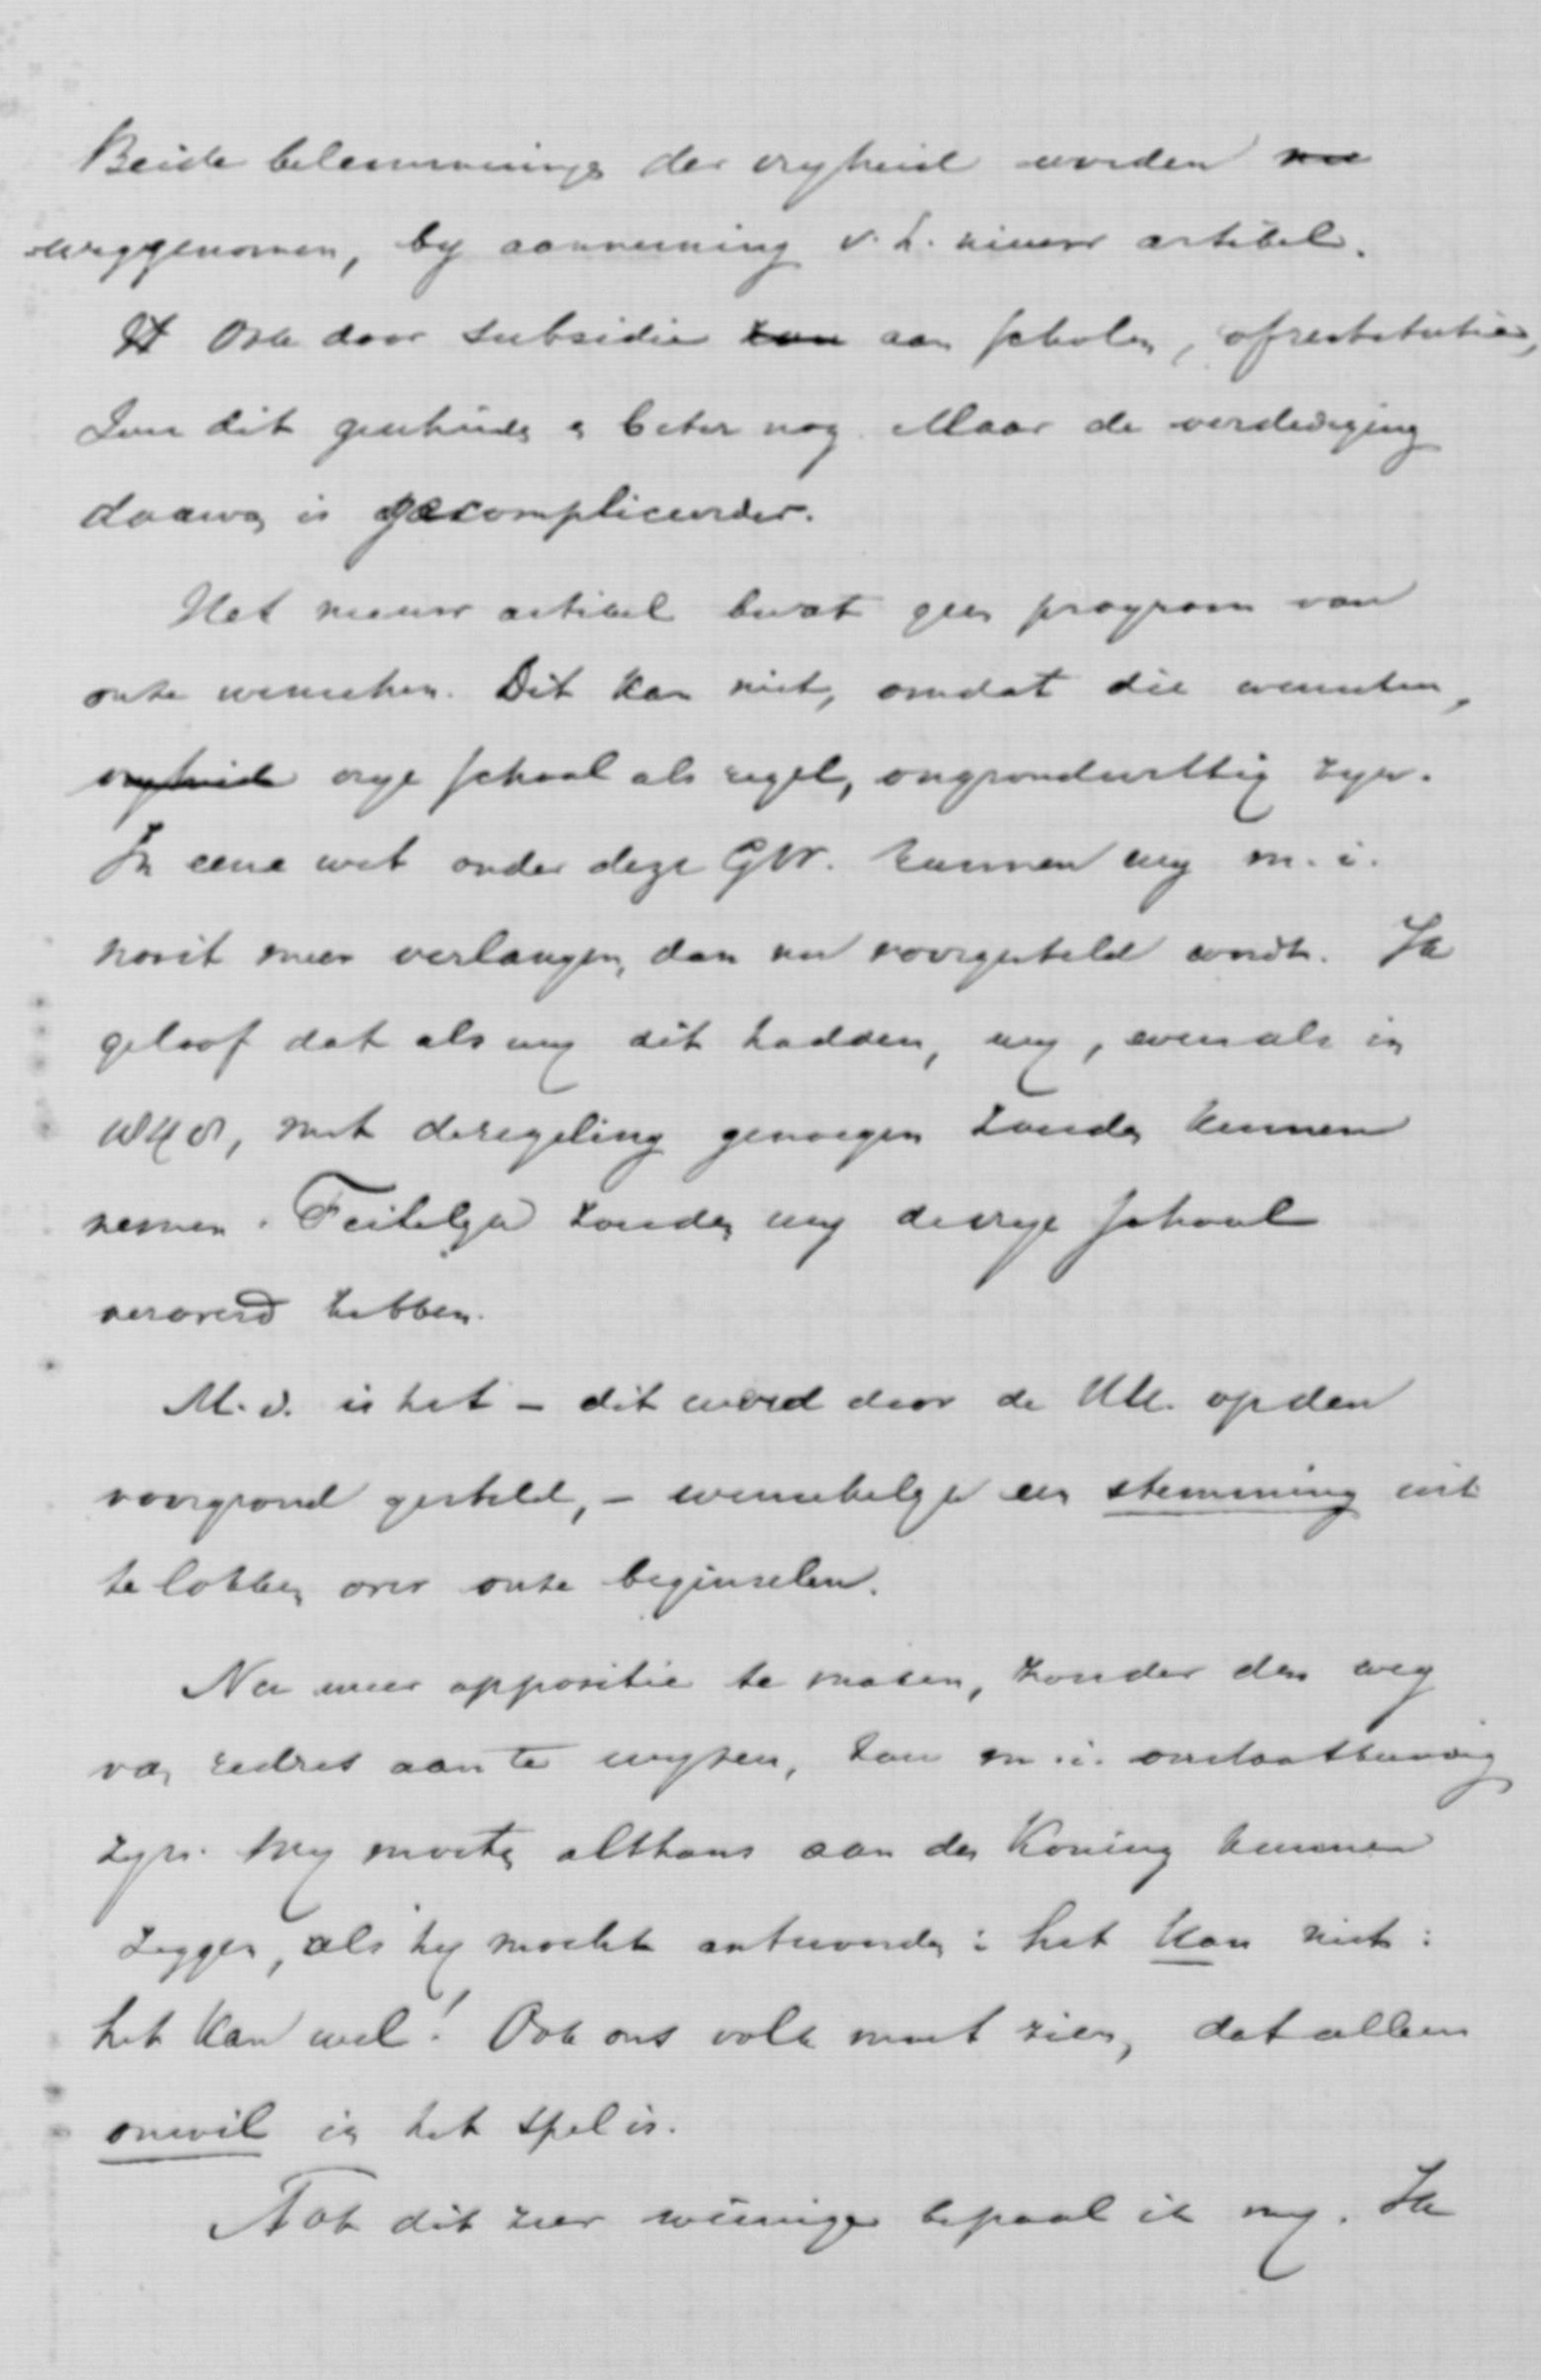 Beide belemmeringen der vryheid worden nu
weggenomen, by aanneming v. h. nieuw artikel.
Ook door subsidie kan aan scholen, of restitutie,
zou dit geschieden en beter nog. Maar de verdediging
daarvan is gecompliceerder.
Het nieuw artikel bevat geen program van
onze wenschen. Dit kan niet, omdat die wenschen,
vryheid vrye school als regel, ongrondwettig zyn.
In eene wet onder deze GW. kunnen wy m. i.
nooit meer verlangen, dan nu voorgesteld wordt. Ik
geloof dat als wy dit hadden, wy, evenals in
met de regeling genoegen zouden kunnen
nemen. Feitelyk zouden wy de vrye school
veroverd hebben.
M. i. is het – dit werd door de UU. op den
voorgrond gesteld, – wenschelyk een stemming uit
te lokken over onze beginselen.
Nu weer oppositie te maken, zonder den weg
van redres aan te wyzen, zou m. i. onstaatkundig
zyn. Wy moeten althans aan den Koning kunnen
zeggen, als hy mocht antwoorden: het kan niet:
het kan wel! Ook ons volk moet zien, dat alleen
onwil in het spel is.
Tot dit zeer weinige bepaal ik my. Ik